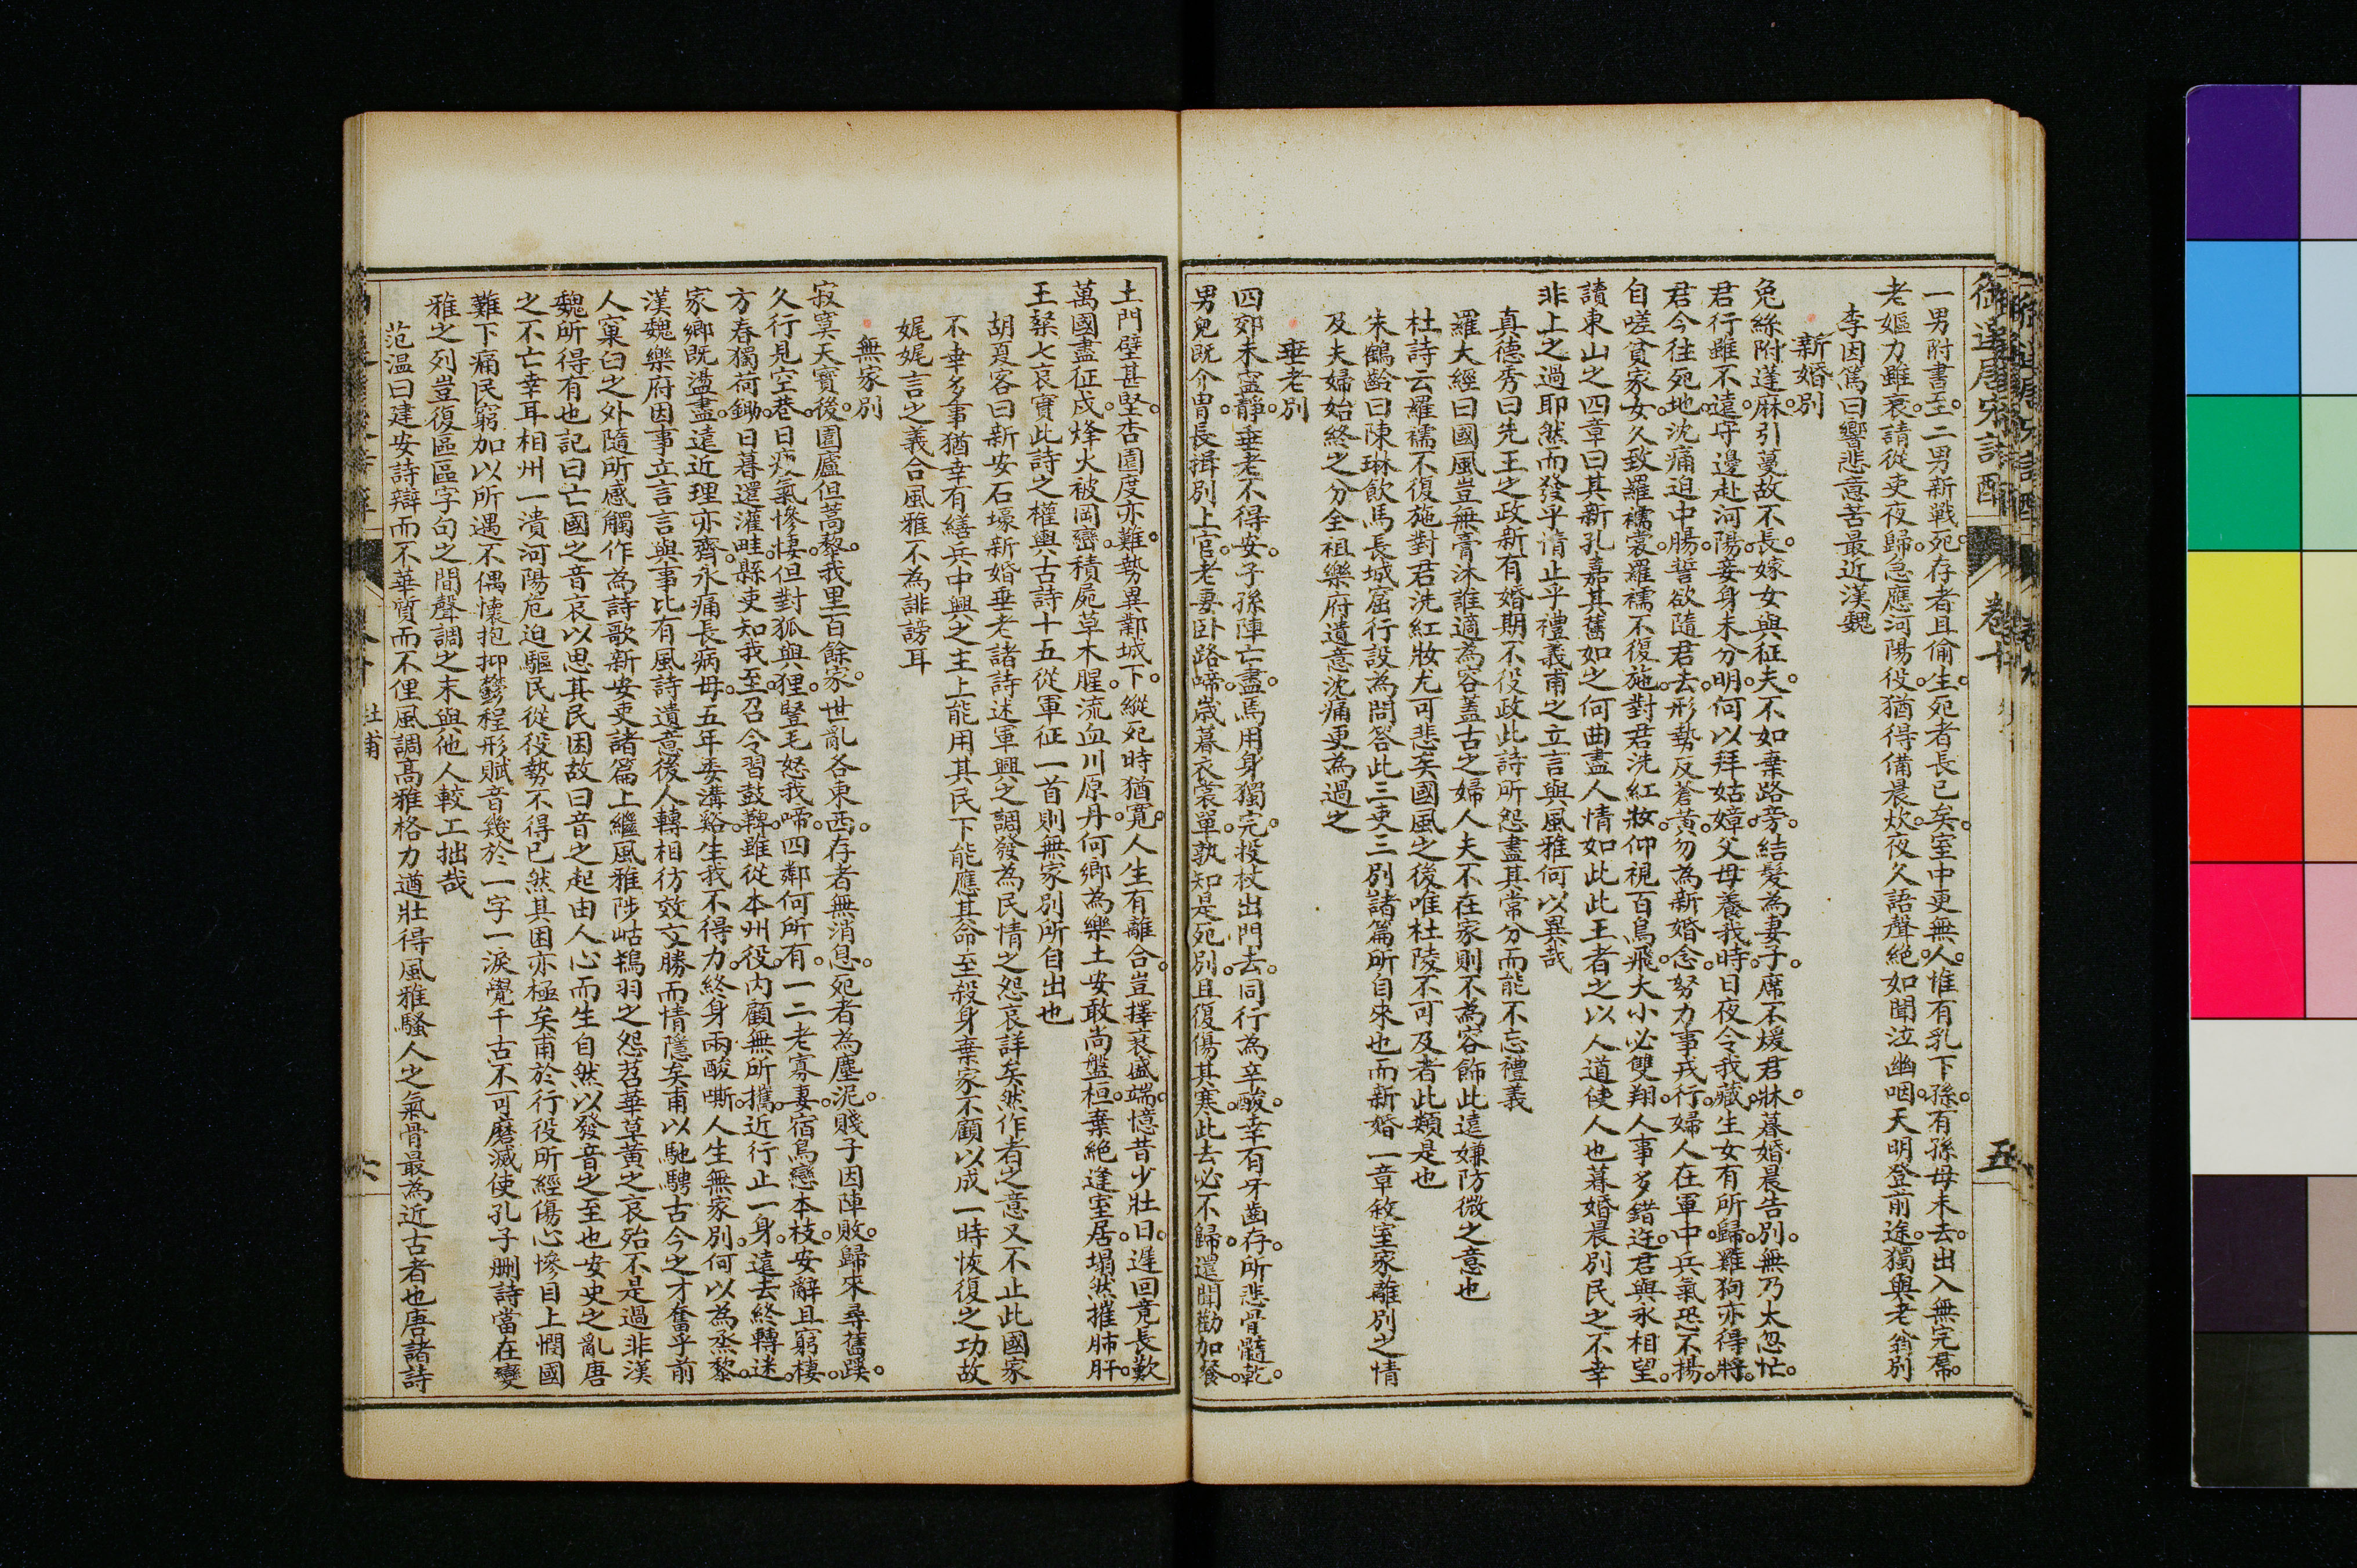 御選唐宋詩醇
卷十
五
一男附書至二男新戰死存者且偷生死者長已矣室中更無人惟有乳下孫有孫母未去出入無完裠
老嫗力雖衰請從吏夜歸急應河陽役猶得備晨炊夜久語聲絶如聞泣幽咽天明登前途獨與老翁別
李因篤曰響悲意苦最近漢魏
新婚別
兔絲附蓬麻引蔓故不長嫁女與征夫不如棄路旁結髮為妻子席不煖君牀暮婚晨告別無乃太忽忙
君行雖不遠守邊赴河陽妾身未分明何以拜姑嫜父母養我時日夜令我藏生女有所歸雞狗亦得將
君今往死地沈痛迫中腸誓欲隨君去形勢反蒼黃勿為新婚念努力事戎行婦人在軍中兵氣恐不揚
自嗟貧家女久致羅襦裳羅襦不復施對君洗紅妝仰視百鳥飛大小必雙翔人事多錯迕君與永相望
讀東山之四章曰其新孔嘉其舊如之何曲盡人情如此此王者之以人道使人也暮婚晨別民之不幸
非上之過耶然而發乎情止乎禮義甫之立言與風雅何以異哉
真德秀曰先王之政新有婚期不役政此詩所怨盡其常分而能不忘禮義
羅大經曰國風豈無膏沐誰適為容蓋古之婦人夫不在家則不為容飾此遠嫌防微之意也
杜詩云羅襦不復施對君洗紅妝尤可悲矣國風之後唯杜陵不可及者此類是也
朱鶴齡曰陳琳飲馬長城窟行設為問答此三吏三別諸篇所自來也而新婚一章敘室家離別之情
及夫婦始終之分全祖樂府遺意沈痛更為過之
垂老別
四郊未寧靜垂老不得安子孫陣亡盡焉用身獨完投杖出門去同行為辛酸幸有牙齒存所悲骨髓乾
男兒既介冑長揖別上官老妻卧路啼歲暮衣裳單孰知是死別且復傷其寒此去必不歸還聞勸加餐
土門壁甚堅杏園度亦難勢異鄴城下縱死時猶寬人生有離合豈擇衰盛端憶昔少壯日遲回竟長歎
萬國盡征戍烽火被岡巒積屍草木腥流血川原丹何鄉為樂土安敢尚盤桓棄絶蓬室居塌然摧肺肝
王粲七哀實此詩之權輿古詩十五從軍征一首則無家別所自出也
胡夏客曰新安石壕新婚垂老諸詩述軍興之調發為民情之怨哀詳矣然作者之意又不止此國家
不幸多事猶幸有繕兵中興之主上能用其民下能應其命至殺身棄家不顧以成一時恢復之功故
娓娓言之義合風雅不為誹謗耳
無家別
寂寞天寶後園廬但蒿藜我里百餘家世亂各東西存者無消息死者為塵泥賤子因陣敗歸來尋舊蹊
久行見空巷日瘦氣慘悽但對狐與狸豎毛怒我啼四鄰何所有一二老寡妻宿鳥戀本枝安辭且窮棲
方春獨荷鋤日暮還灌畦縣吏知我至召令習鼓鞞雖從本州役內顧無所攜近行止一身遠去終轉迷
家鄉既盪盡遠近理亦齊永痛長病母五年委溝谿生我不得力終身兩酸嘶人生無家別何以為烝黎
漢魏樂府因事立言言與事比有風詩遺意後人轉相彷效文勝而情隱矣甫以馳騁古今之才奮乎前
人窠臼之外隨所感觸作為詩歌新安吏諸篇上繼風雅陟岵鴇羽之怨苕華草黃之哀殆不是過非漢
魏所得有也記曰亡國之音哀以思其民困故曰音之起由人心而生自然以發音之至也安史之亂唐
之不亡幸耳相州一潰河陽危迫驅民從役勢不得已然其困亦極矣甫於行役所經傷心慘目上憫國
難下痛民窮加以所遇不偶懷抱抑鬱程形賦音幾於一字一淚覺千古不可磨滅使孔子刪詩當在變
雅之列豈復區區字句之間聲調之末與他人較工拙哉
范温曰建安詩辯而不華質而不俚風調高雅格力遒壯得風雅騷人之氣骨最為近古者也唐諸詩
杜甫
六